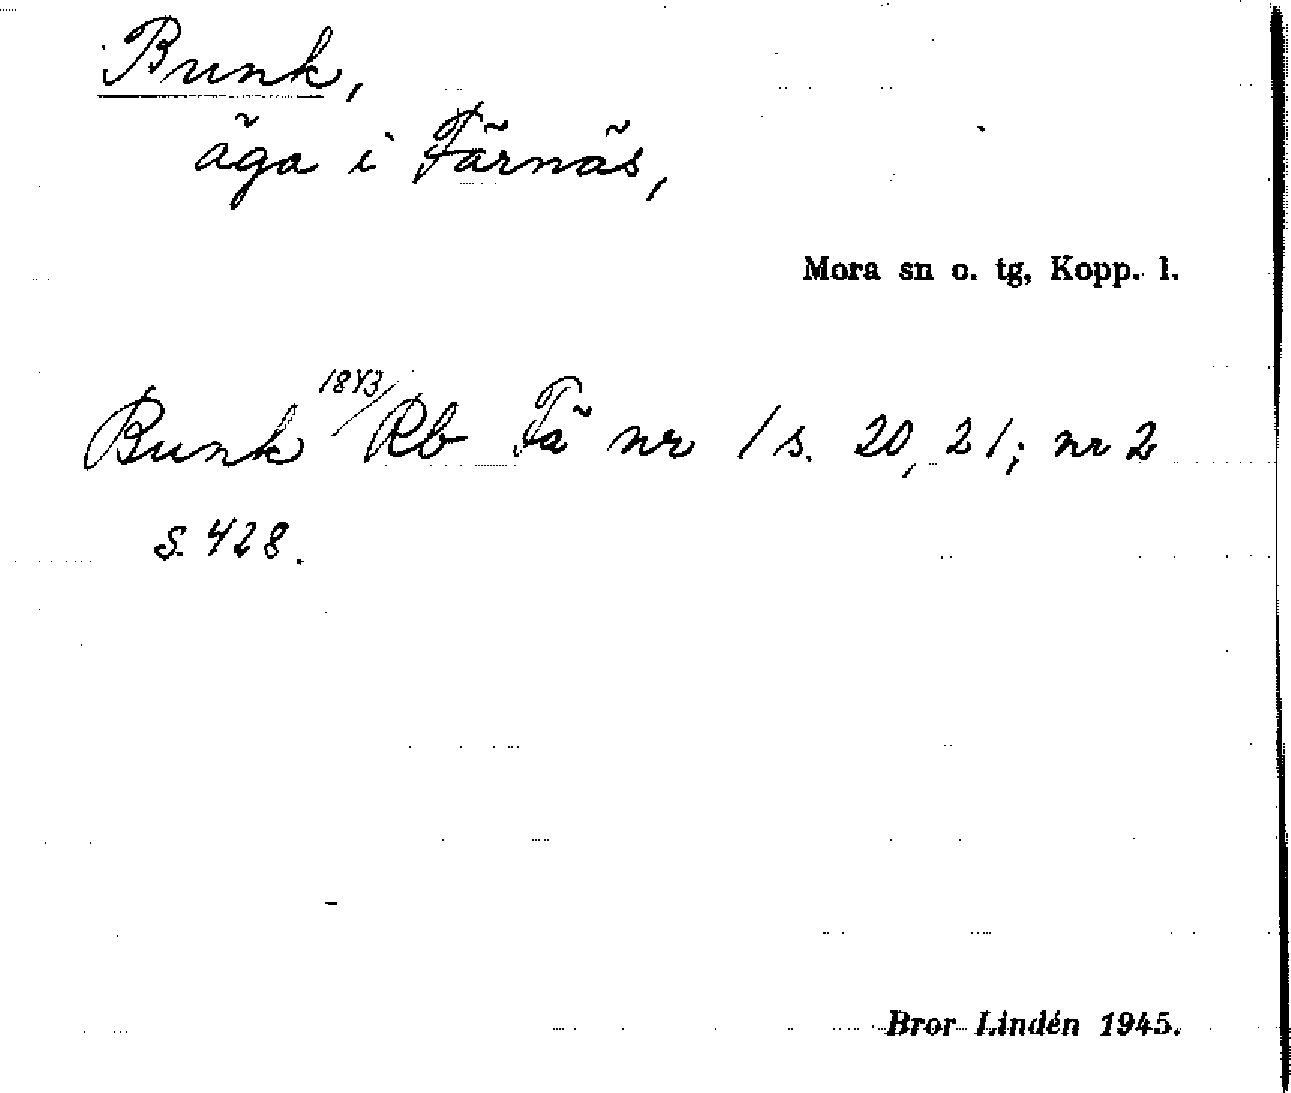 Bunk,
äga i Färnäs,
Mora sn o. tg, Kopp. l.
Bunk 1843/Rb Fä nr 1 s. 20, 21; nr 2
s. 428.
Bror Lindén 1945.